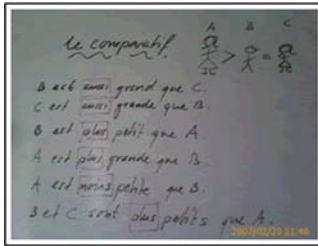 le comparatif
A B C
> =
B est aussi grand que C.
C est aussi grande que B.
B est plus petit que A.
A est plus grande que B.
A est moins petite que B.
B et C sont plus petits que A.
2007/02/20 11:46